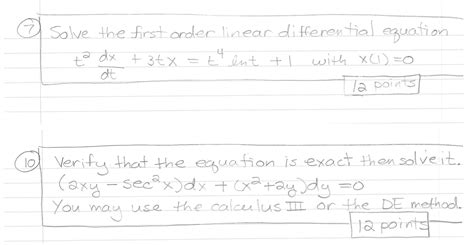 7 Solve the first order linear differential equation
t² dx/dt + 3tx = t⁴ lnt + 1 with x(1)=0
12 points
10 Verify that the equation is exact then solve it.
(2xy - sec²x)dx + (x²+2y)dy = 0
You may use the calculus III or the DE method.
12 points